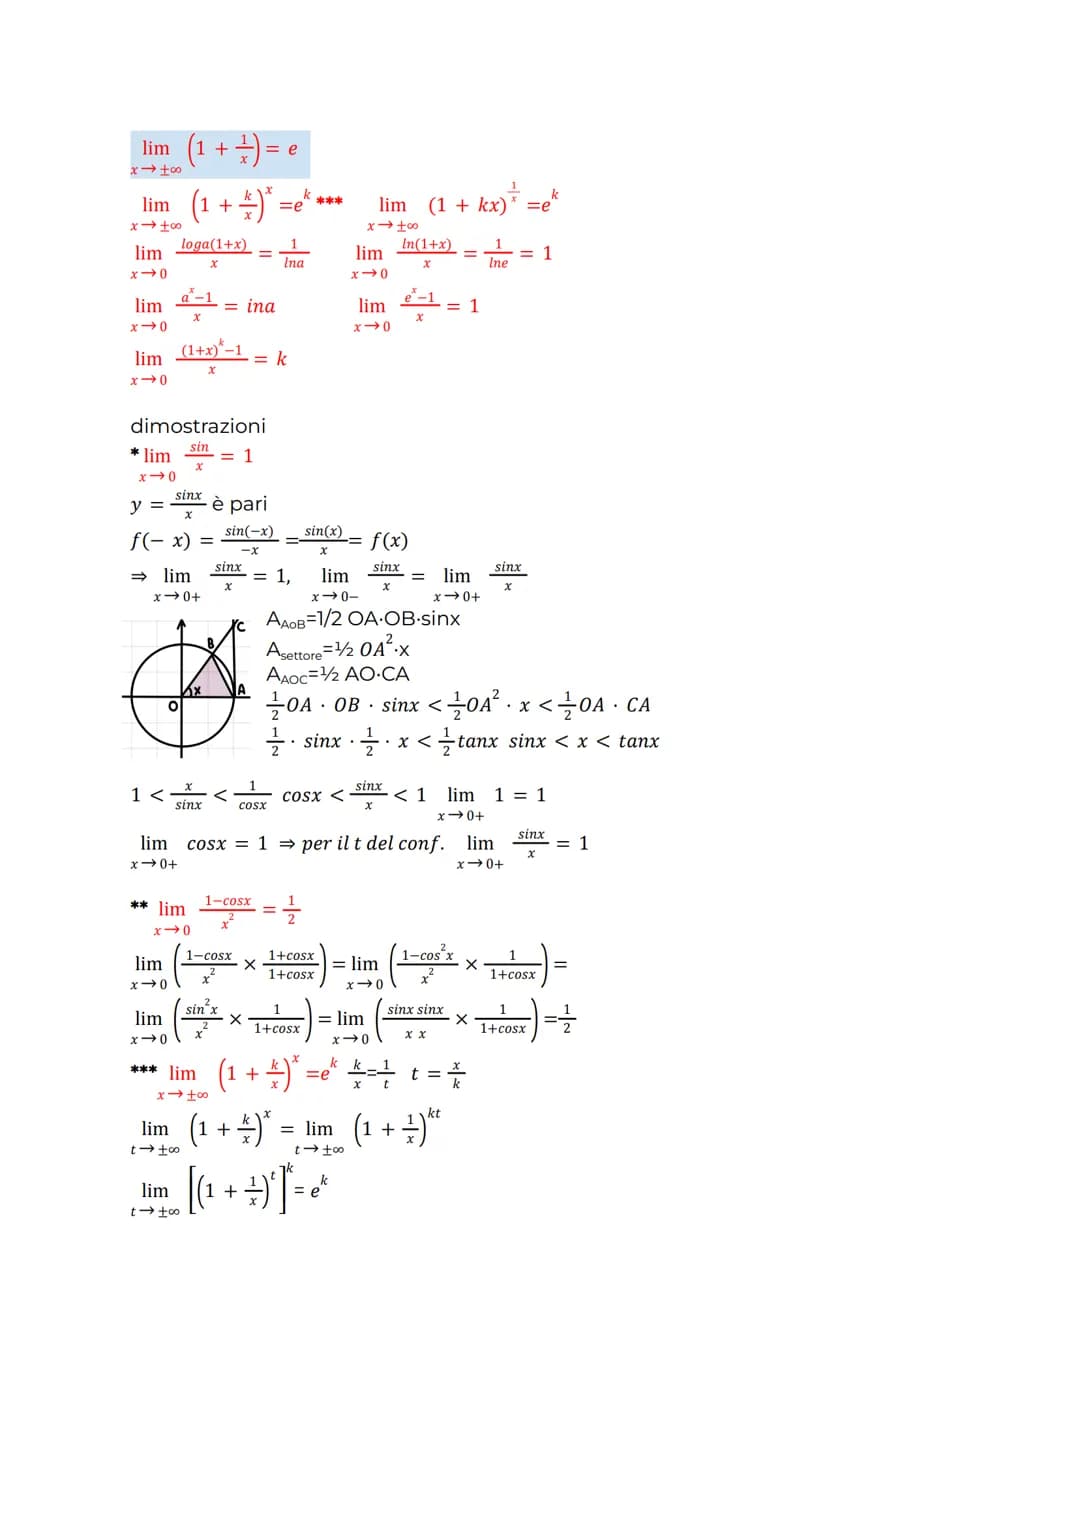 lim x→±∞ (1 + 1/x) = e
lim x→±∞ (1 + k/x)^x =e^k *** lim x→±∞ (1 + kx)^(1/x) =e^k
lim x→0 loga(1+x)/x = 1/lna lim x→0 ln(1+x)/x = 1/lne = 1
lim x→0 (a^x−1)/x = ina lim x→0 (e^x−1)/x = 1
lim x→0 ((1+x)^k−1)/x = k
dimostrazioni
* lim x→0 sin/x = 1
y = sinx/x è pari
f(− x) = sin(−x)/−x = sin(x)/x = f(x)
⇒ lim x→0+ sinx/x = 1, lim x→0− sinx/x = lim x→0+ sinx/x
A_AoB=1/2 OA·OB·sinx
A_settore=½ OA²·x
A_AOC=½ AO·CA
1/2 OA · OB · sinx < 1/2 OA² · x < 1/2 OA · CA
1/2 · sinx · 1/2 · x < 1/2 tanx sinx < x < tanx
C
B
x
A
O
1 < x/sinx < 1/cosx cosx < sinx/x < 1 lim x→0+ 1 = 1
lim x→0+ cosx = 1 ⇒ per il t del conf. lim x→0+ sinx/x = 1
** lim x→0 (1−cosx)/x² = 1/2
lim x→0 ((1−cosx)/x² × (1+cosx)/(1+cosx)) = lim x→0 ((1−cos²x)/x² × 1/(1+cosx)) =
lim x→0 (sin²x/x² × 1/(1+cosx)) = lim x→0 (sinx sinx/x x × 1/(1+cosx)) = 1/2
*** lim x→±∞ (1 + k/x)^x =e^k k/x = 1/t t = x/k
lim t→±∞ (1 + k/x)^x = lim t→±∞ (1 + 1/x)^kt
lim t→±∞ [(1 + 1/x)^t]^k = e^k